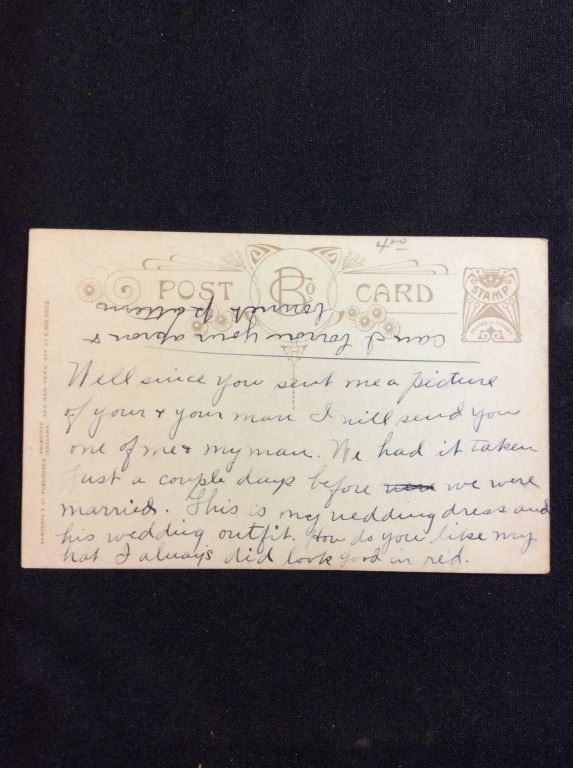 4 00
POST B Co CARD
STAMP
can I borrow your apron &
bonnet pattern
Well since you sent me a picture
of your & your man I will send you
one of me & my man. We had it taken
Just a couple days before were we were
married. This is my wedding dress and
his wedding outfit. How do you like my
hat I always did look good in red.